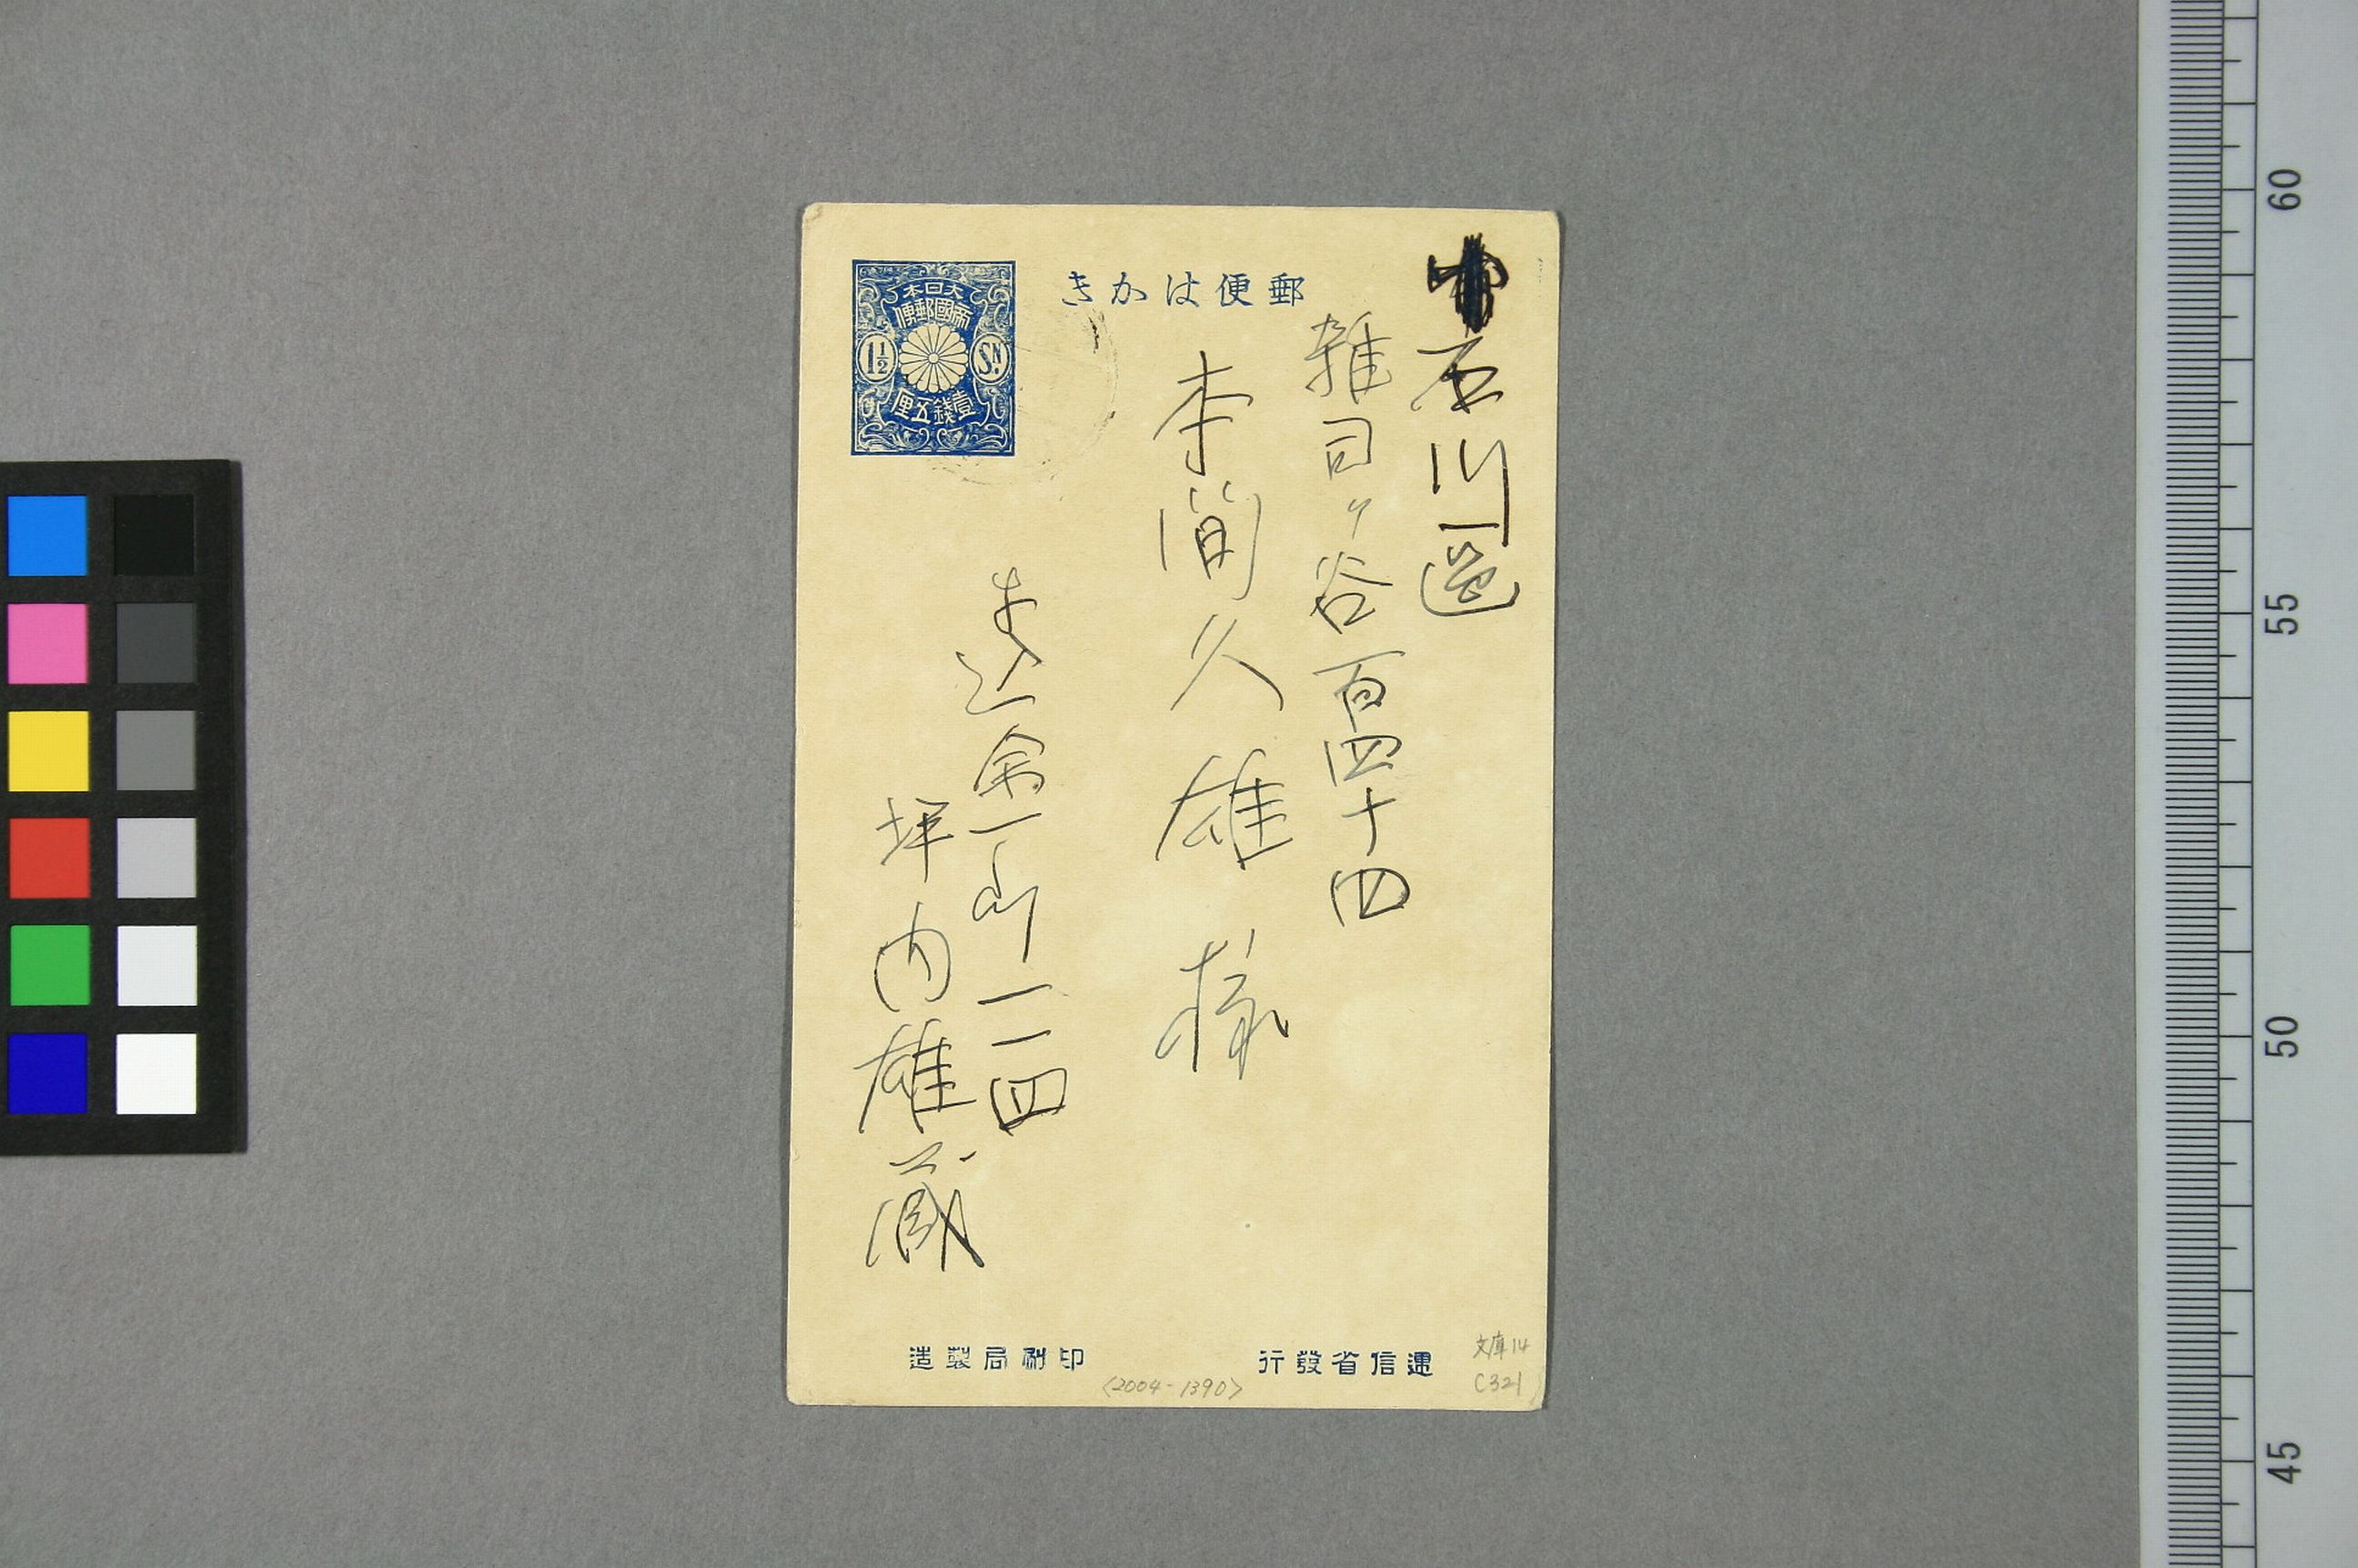 郵便はかき
大日本
帝國郵便
1½
SN.
壹錢五厘
石川區
雑司ヶ谷百四十四
本間久雄様
牛込余丁町一一四
坪内雄蔵
遞信省發行
印刷局製造
文庫14
C321
<2004-1390>
60
55
50
45